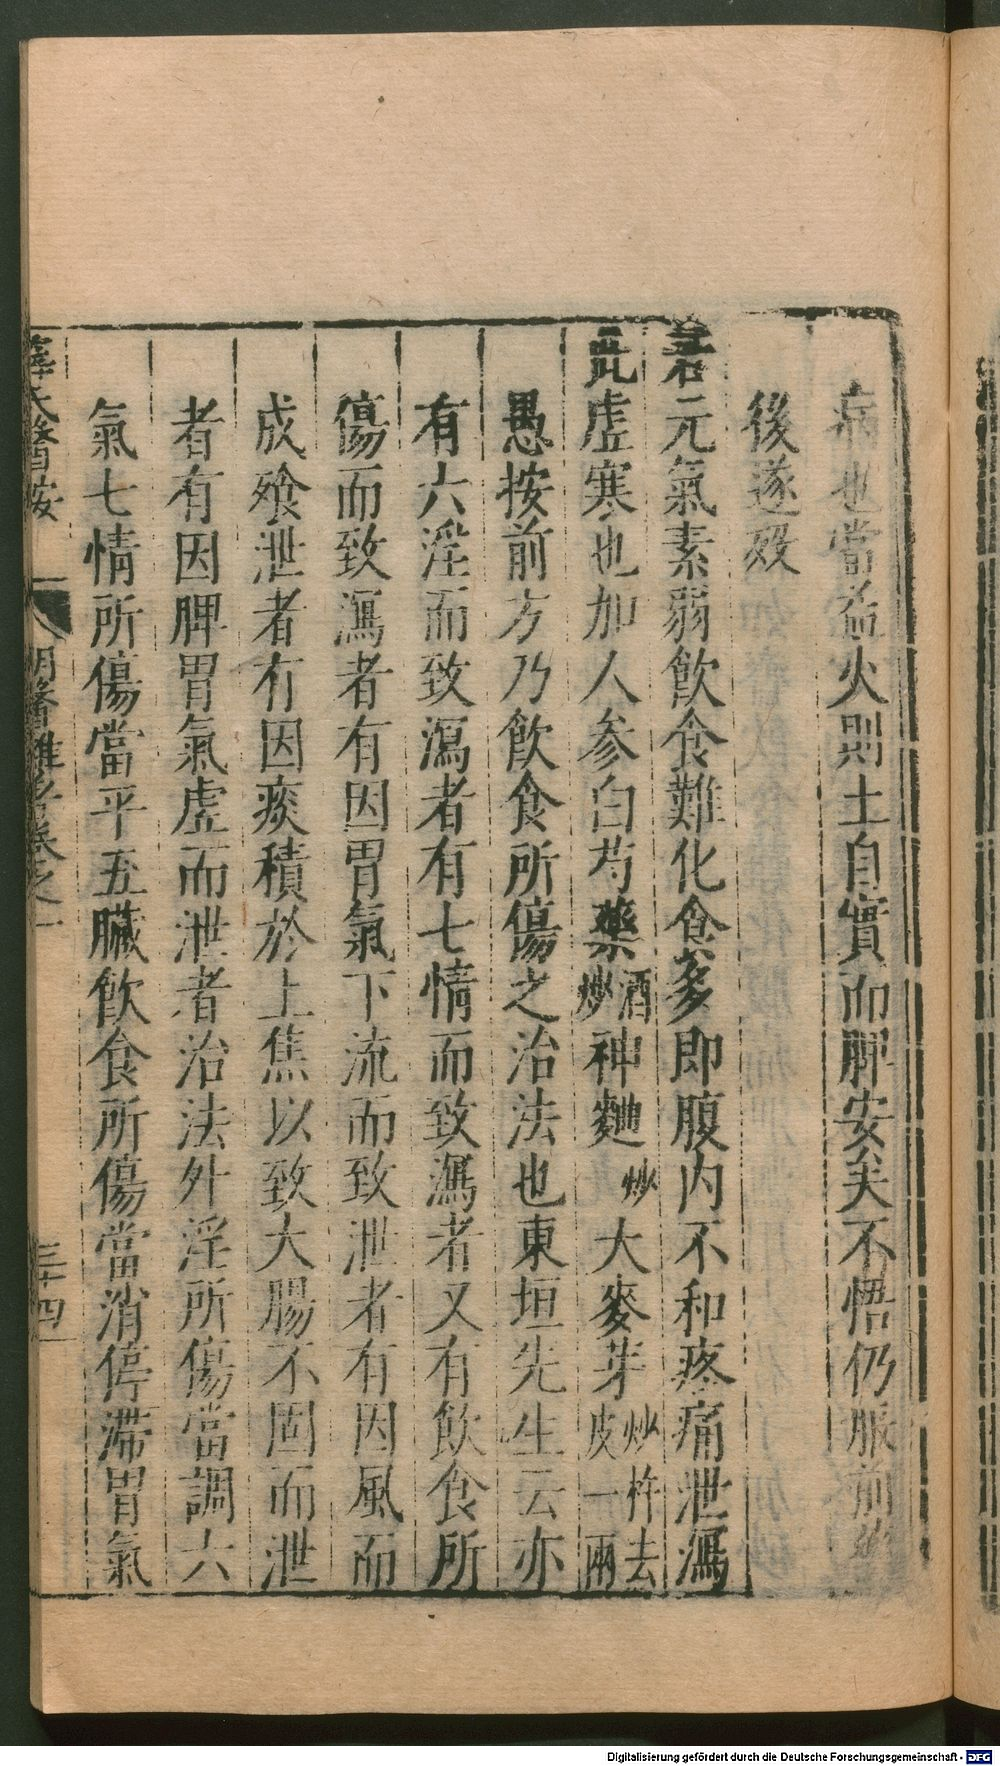 病也當益火則土自實而脾安矣不悟仍服前藥
後遂歿
若元氣素弱飲食難化食多即腹內不和疼痛泄瀉
此虛寒也加人參白芍藥酒炒神麯炒大麥芽炒杵去皮一兩
愚按前方乃飲食所傷之治法也東垣先生云亦
有六淫而致瀉者有七情而致瀉者又有飲食所
傷而致瀉者有因胃氣下流而致泄者有因風而
成飱泄者有因痰積於上焦以致大腸不固而泄
者有因脾胃氣虛而泄者治法外淫所傷當調六
氣七情所傷當平五臟飲食所傷當消停滯胃氣
薛氏醫按 明醫雜著卷之一 三十四
Digitalisierung gefördert durch die Deutsche Forschungsgemeinschaft - DFG